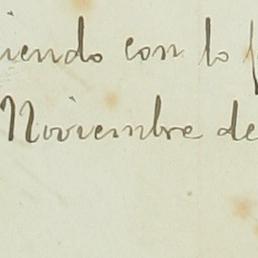 iendo con lo
Noviembre de